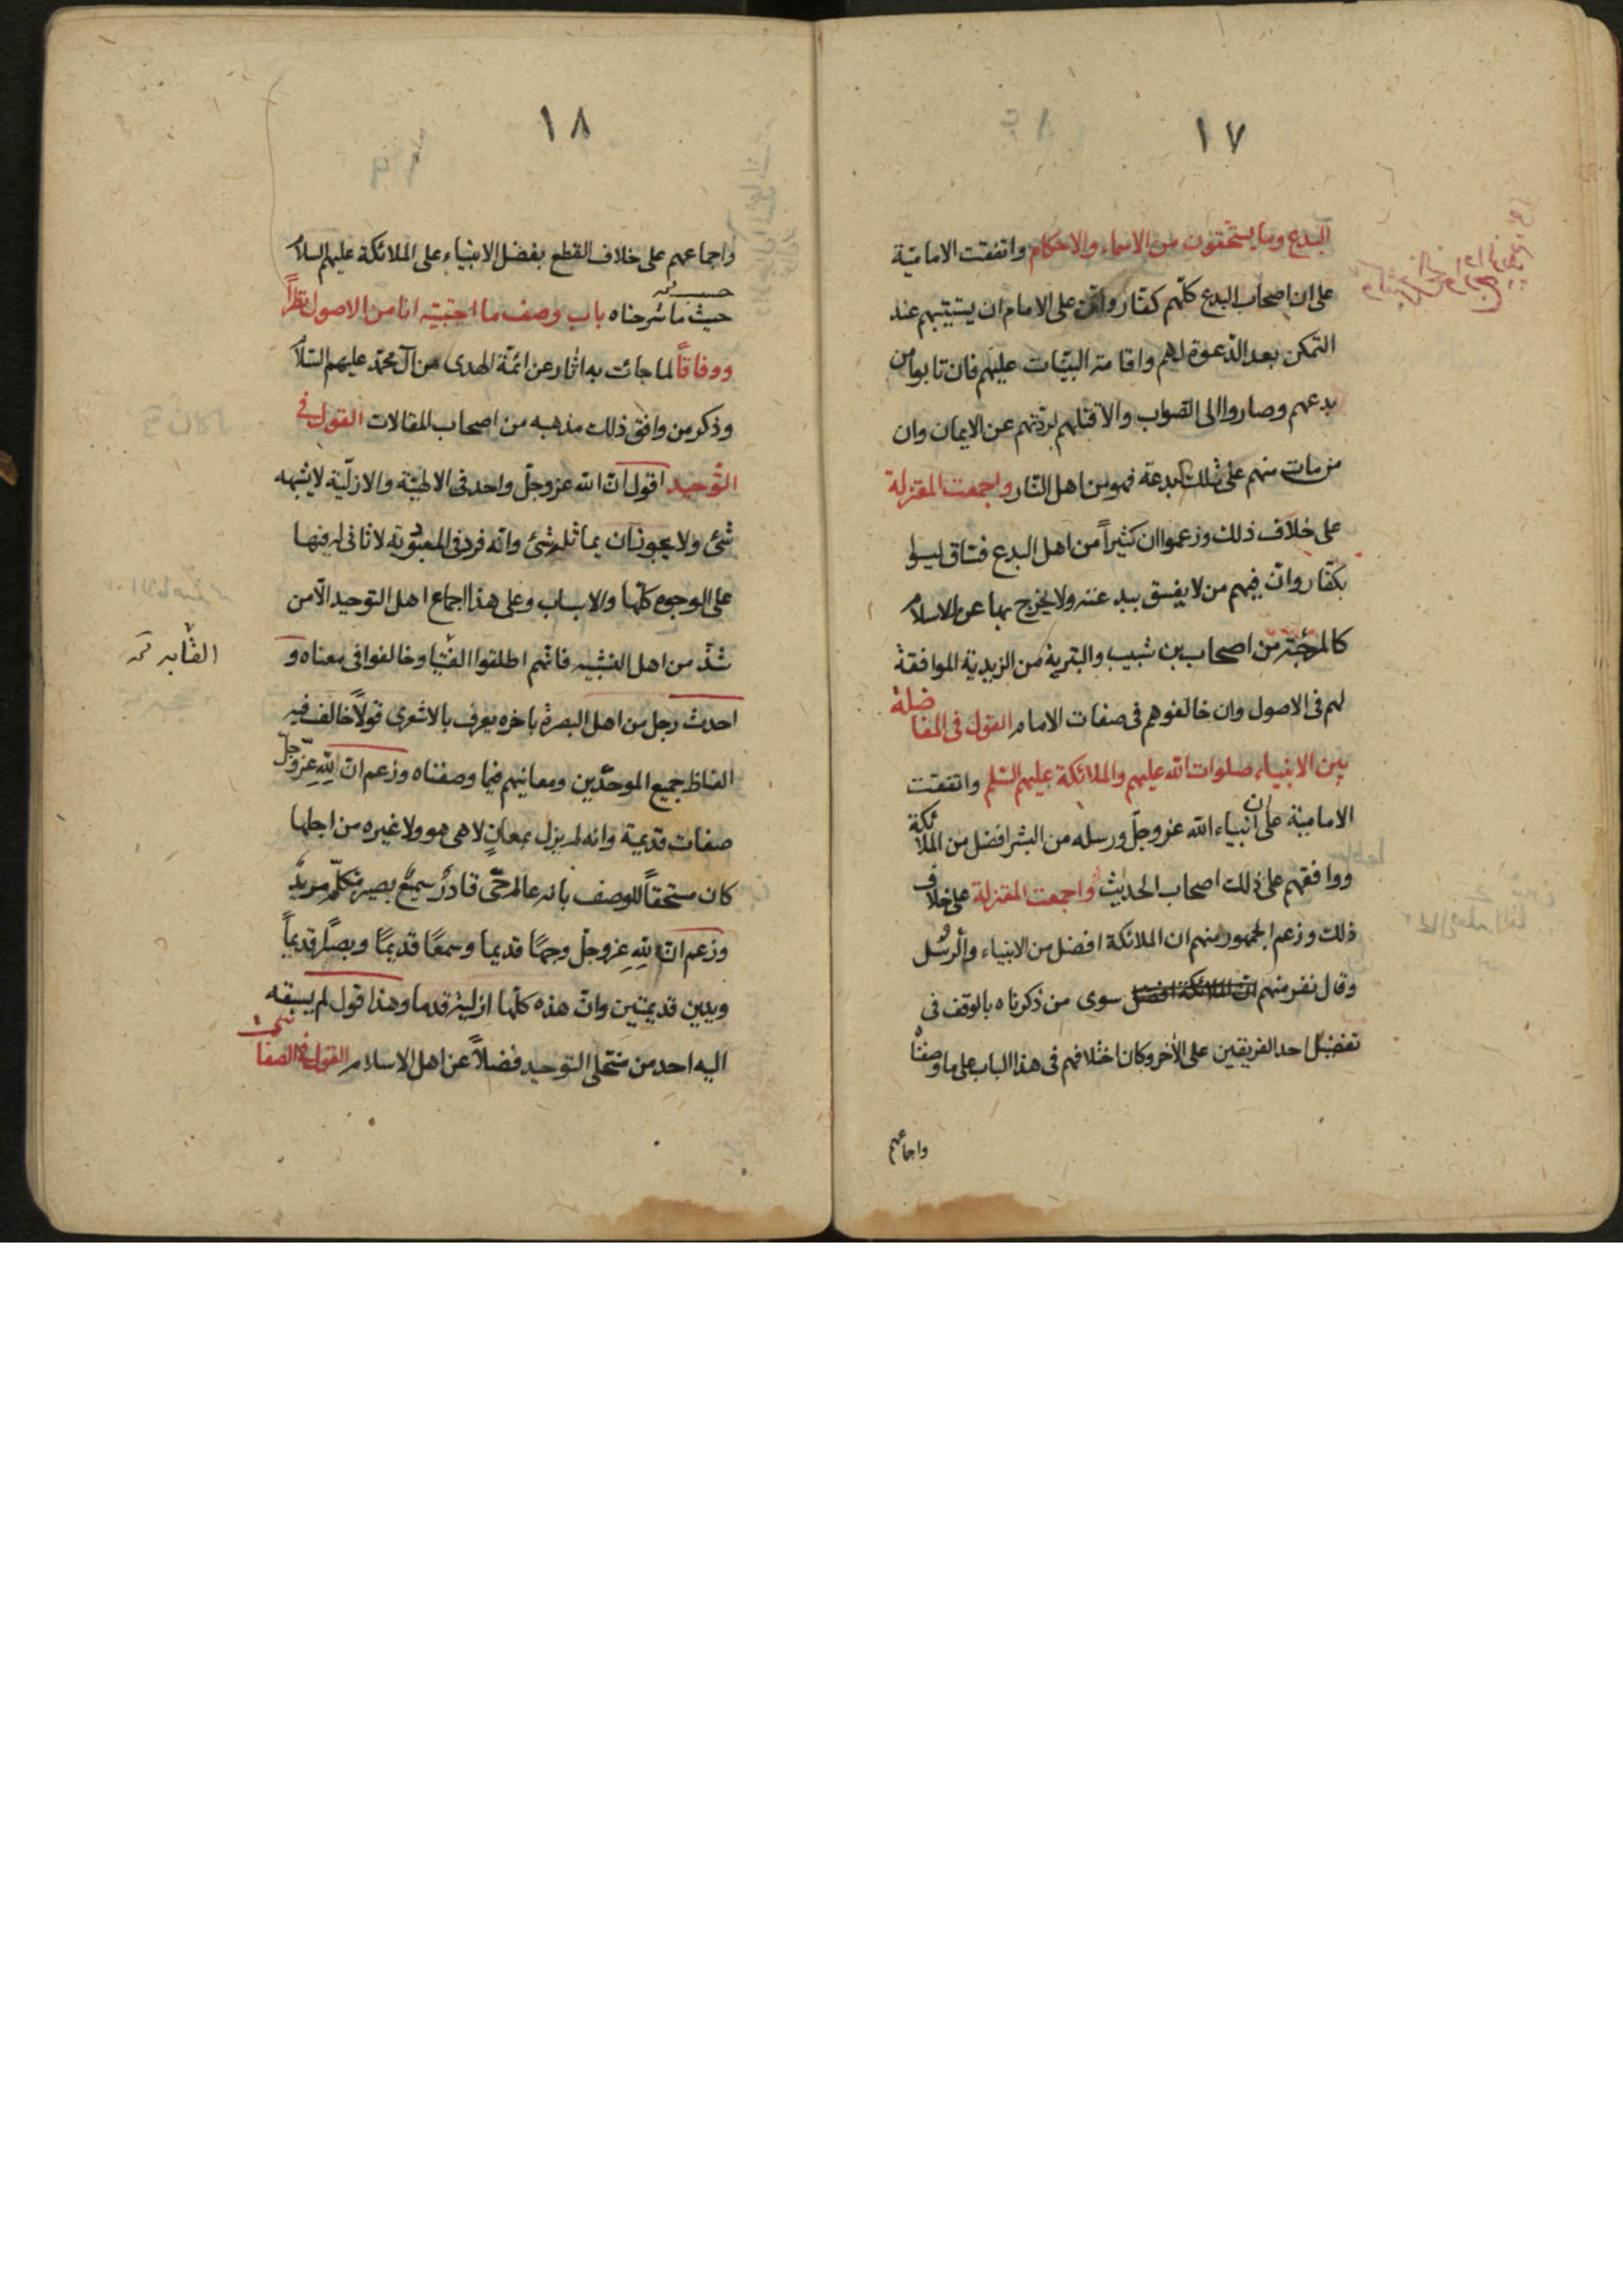 ١٧
البدع وما يستحقون من الاسماء والاحكام واتفقت الامامية
على ان اصحاب البدع كلهم كفار وان على الامام ان يستتيبهم عند
التمكن بعد الدعوة لهم واقامة البينات عليهم فان تابوا من
بدعهم وصاروا الى الصواب والا قتلهم لردتهم عن الايمان وان
من مات منهم على تلك البدعة فهو من اهل النار واجمعت المعتزلة
على خلاف ذلك وزعموا ان كثيراً من اهل البدع فساق ليسوا
بكفار وان فيهم من لا يفسق ببدعته ولا يخرج بها عن الاسلام
كالمرجئة من اصحاب بن شبيب والبترية من الزيدية الموافقة
لهم فى الاصول وان خالفوهم فى صفات الامام القول فى المفاضلة
بين الانبياء صلوات الله عليهم والملائكة عليهم السلم واتفقت
الامامية على ان انبياء الله عز وجل ورسله من البشر افضل من الملائكة
ووافقهم على ذلك اصحاب الحديث واجمعت المعتزلة على خلاف
ذلك وزعم الجمهور منهم ان الملائكة افضل من الانبياء والرسل
وقال نفر منهم ان الملائكة افضل سوى من ذكرناه بالوقف فى
تفضيل احد الفريقين على الاخر وكان اختلافهم فى هذا الباب على ما وصفناه
واجماعهم
١٨
واجماعهم على خلاف القطع بفضل الانبياء على الملائكة عليهم السلام
حسب
حيث ما شرحناه باب وصف ما اجتبيته انا من الاصول نظراً
ووفاقاً لما جائت به اثار عن ائمة الهدى من آل محمد عليهم السلام
وذكر من وافق ذلك مذهبه من اصحاب المقالات القول فى
التوحيد اقول ان الله عز وجل واحد فى الالهية والازلية لا يشبهه
شئ ولا يجوز ان يماثله شئ وانه فرد فى المعبودية لا ثانى له فيها
على الوجوه كلها والاسباب وعلى هذا اجماع اهل التوحيد الا من
شذ من اهل التشبيه فانهم اطلقوا الفتيا وخالفوا فى معناه و
احدث رجل من اهل البصرة باخره يعرف بالاشعرى قولاً خالف فيه
الفاظ جميع الموحدين ومعانيهم فيما وصفناه وزعم ان لله عز وجل
صفات قديمة وانه لم يزل بمعانٍ لا هى هو ولا غيره من اجلها
كان مستحقاً للوصف بانه عالم حى قادر سميع بصير متكلم مريد
وزعم ان لله عز وجل وجهًا قديما وسمعًا قديمًا وبصرًا قديماً
ويدين قديمتين وان هذه كلها ازلية قدما وهذا قول لم يسبقه
اليه احد من منتحلى التوحيد فضلاً عن اهل الاسلام القول فى الصفات